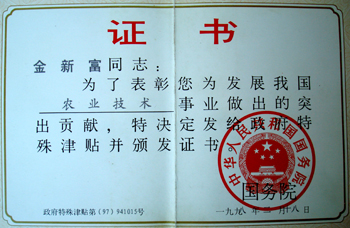 证书
金新富同志：
为了表彰您为发展我国
农业技术事业做出的突
出贡献，特决定发给政府特
殊津贴并颁发证书
中华人民共和国国务院
国务院
政府特殊津贴第(97)941015号
一九九八年 月十八日